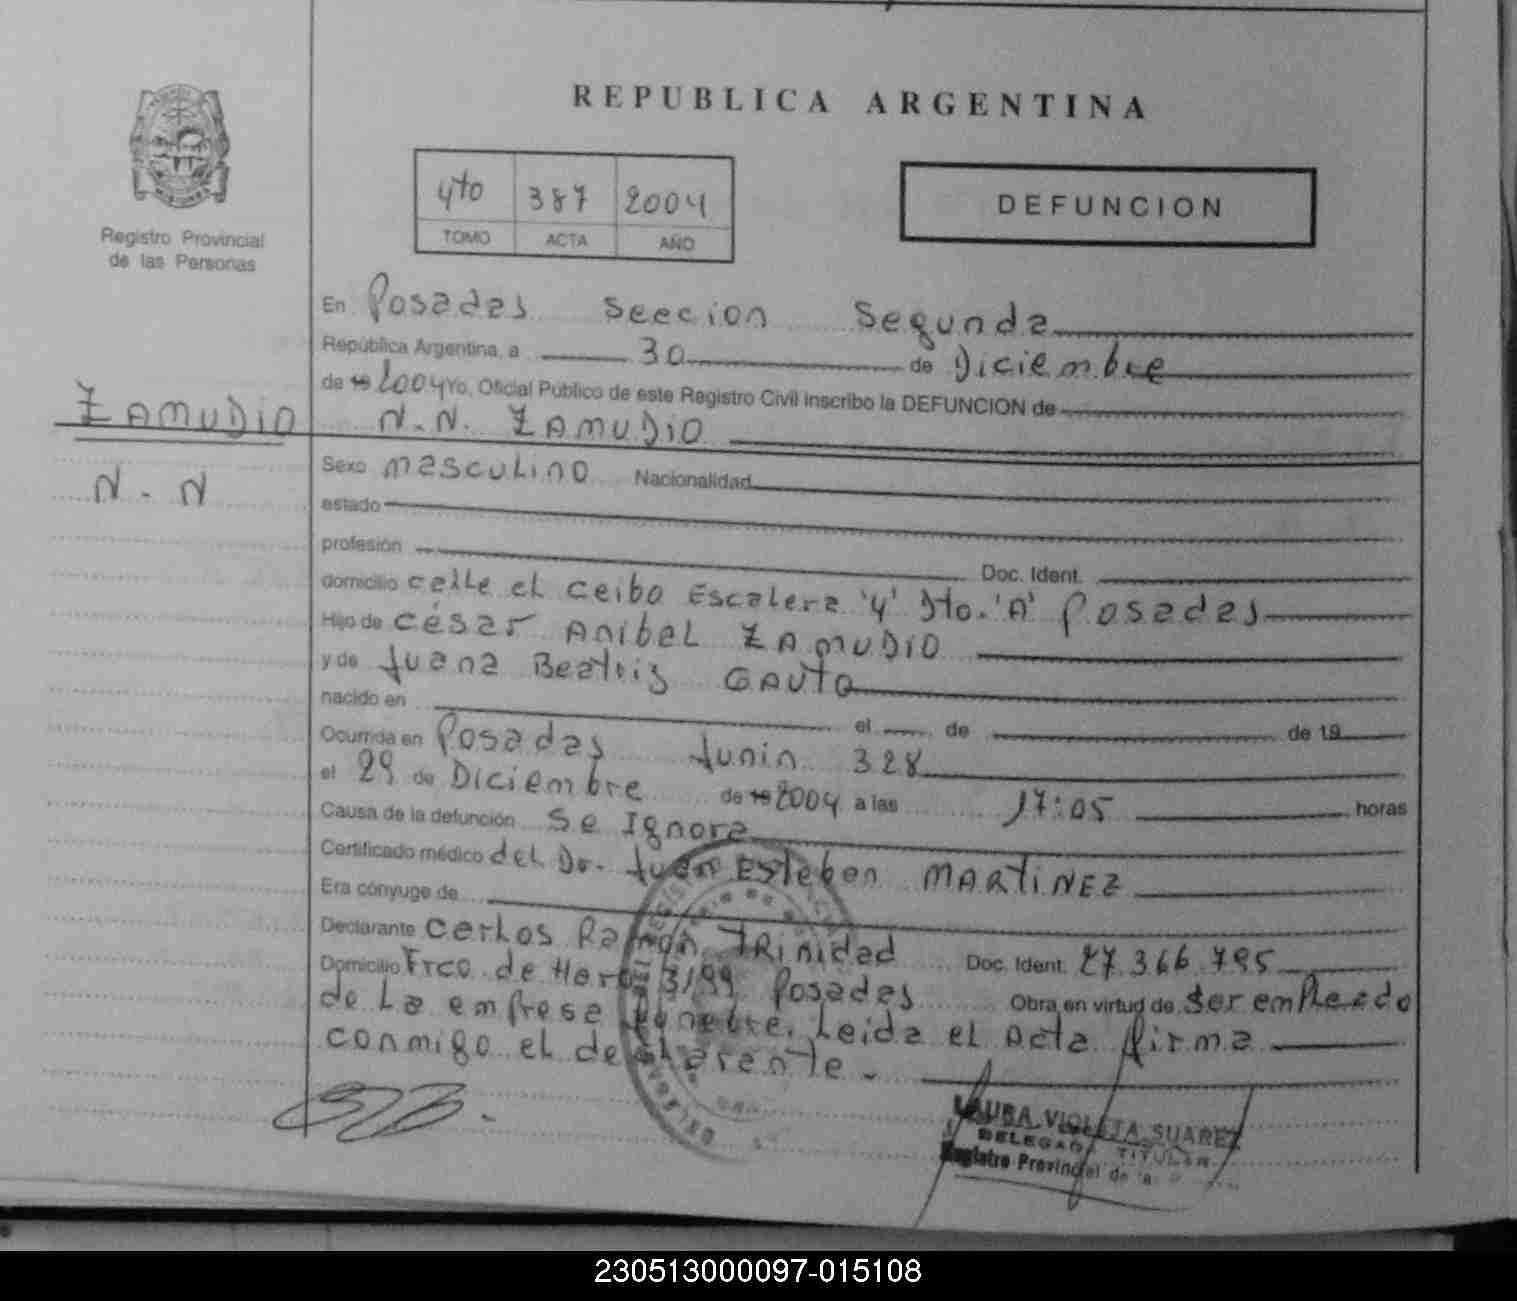 REPUBLICA ARGENTINA
Registro Provincial
de las Personas
4to 387 2004
TOMO ACTA AÑO
DEFUNCION
En Posadas Seccion Segunda
República Argentina, a 30 de Diciembre
de 19 2004 Yo, Oficial Público de este Registro Civil inscribo la DEFUNCION de
ZAMUDIO
N.N. ZAMUDIO
N.N
Sexo masculino Nacionalidad
estado
profesión Doc. Ident.
domicilio calle el ceibo Escalera '4' Dto. 'A' Posadas
Hijo de César Anibal ZAMUDIO
y de Juana Beatriz GAUTO
nacido en el de de 19
Ocurrida en Posadas Junin 328
el 29 de Diciembre de 19 2004 a las 17:05 horas
Causa de la defunción Se Ignora
Certificado médico del Dr. Juan Esteban MARTINEZ
Era cónyuge de
Declarante Carlos Ramon TRinidad Doc. Ident. 27.366.795
Domicilio Frco. de Haro 3199 Posadas Obra en virtud de ser empleado
de La empresa funebre. Leida el Acta firma
conmigo el declarante.
LAURA VIOLETA SUAREZ
DELEGADA TITULAR
Registro Provincial de
230513000097-015108